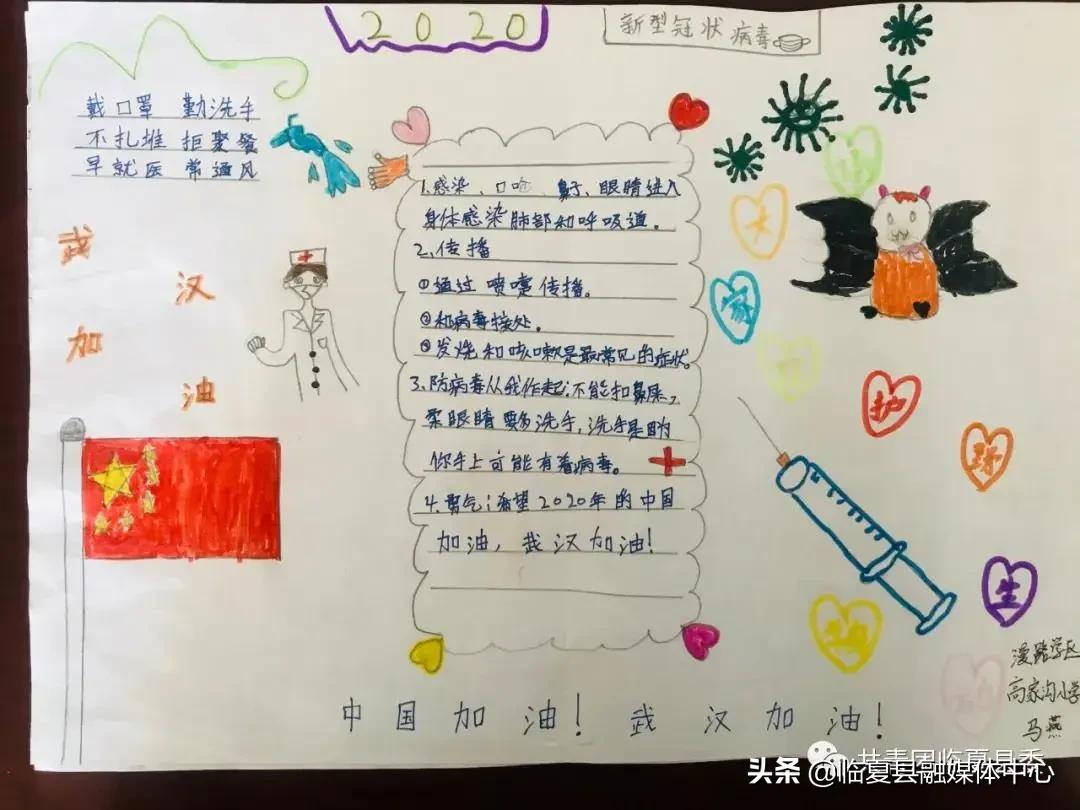 2020
新型冠状病毒
戴口罩 勤洗手
不扎堆 拒聚餐
早就医 常通风
武
汉
加
油
1.感染、口呛、鼻子、眼睛进入
身体感染肺部和呼吸道。
2.传播
①通过 喷嚏 传播。
②和病毒接处。
③发烧和咳嗽是最常见的症状。
3.防病毒从我作起:不能扣鼻屎,
柔眼睛 要多洗手,洗手是因为
你手上可能有着病毒。
4.勇气:希望2020年的中国
加油,武汉加油!
护
生
中国加油!武汉加油!
漫路学区
高家沟小学
马燕
共青团临夏县委
头条 @临夏县融媒体中心